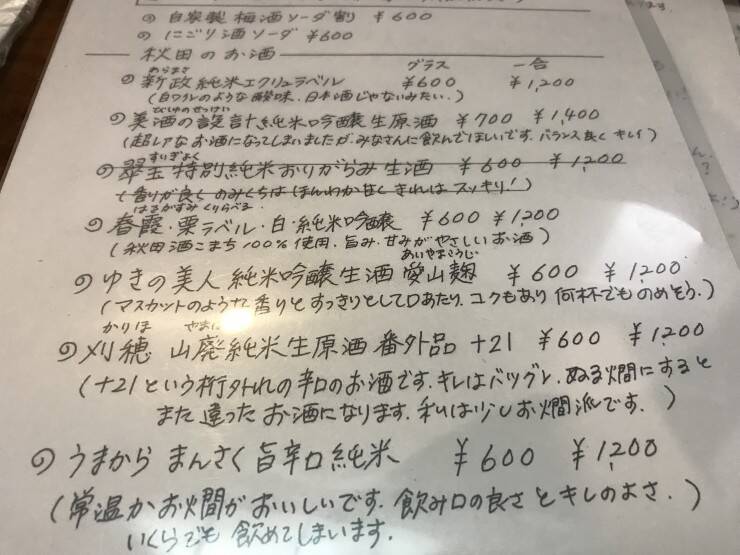 の 自家製 梅酒 ソーダ割 ¥600
の にごり酒 ソーダ ¥600
秋田のお酒
グラス 一合
あらまさ
の 新政 純米 エクリュラベル ¥600 ¥1,200
(白ワインのような酸味、日本酒じゃないみたい。)
びしゅのせっけい
の 美酒の設計 純米吟醸 生原酒 ¥700 ¥1,400
(超レアなお酒になってしまいましたが、みなさんに飲んでほしいです。バランス良く キレイ)
すいぎょく
の 翠玉 特別純米 おりがらみ 生酒 ¥600 ¥1,200
(香りが良く のみくちは ほんわか甘く きれは スッキリ!)
はるがすみ くりらべる
の 春霞・栗ラベル・白・純米吟醸 ¥600 ¥1,200
(秋田酒こまち100%使用。旨み・甘みがやさしいお酒)
あいやまこうじ
の ゆきの美人 純米吟醸 生酒 愛山麹 ¥600 ¥1,200
(マスカットのような香りとすっきりとして口あたり。コクもあり 何杯でものめそう。)
かりほ やまはい
の 刈穂 山廃純米生原酒 番外品 +21 ¥600 ¥1,200
(+21という桁外れの辛口のお酒です。キレはバツグン。ぬる燗にすると
また違ったお酒になります。私は少しお燗派です。)
の うまから まんさく 旨辛口 純米 ¥600 ¥1,200
(常温かお燗がおいしいです。飲み口の良さとキレのよさ。)
いくらでも飲めてしまいます。